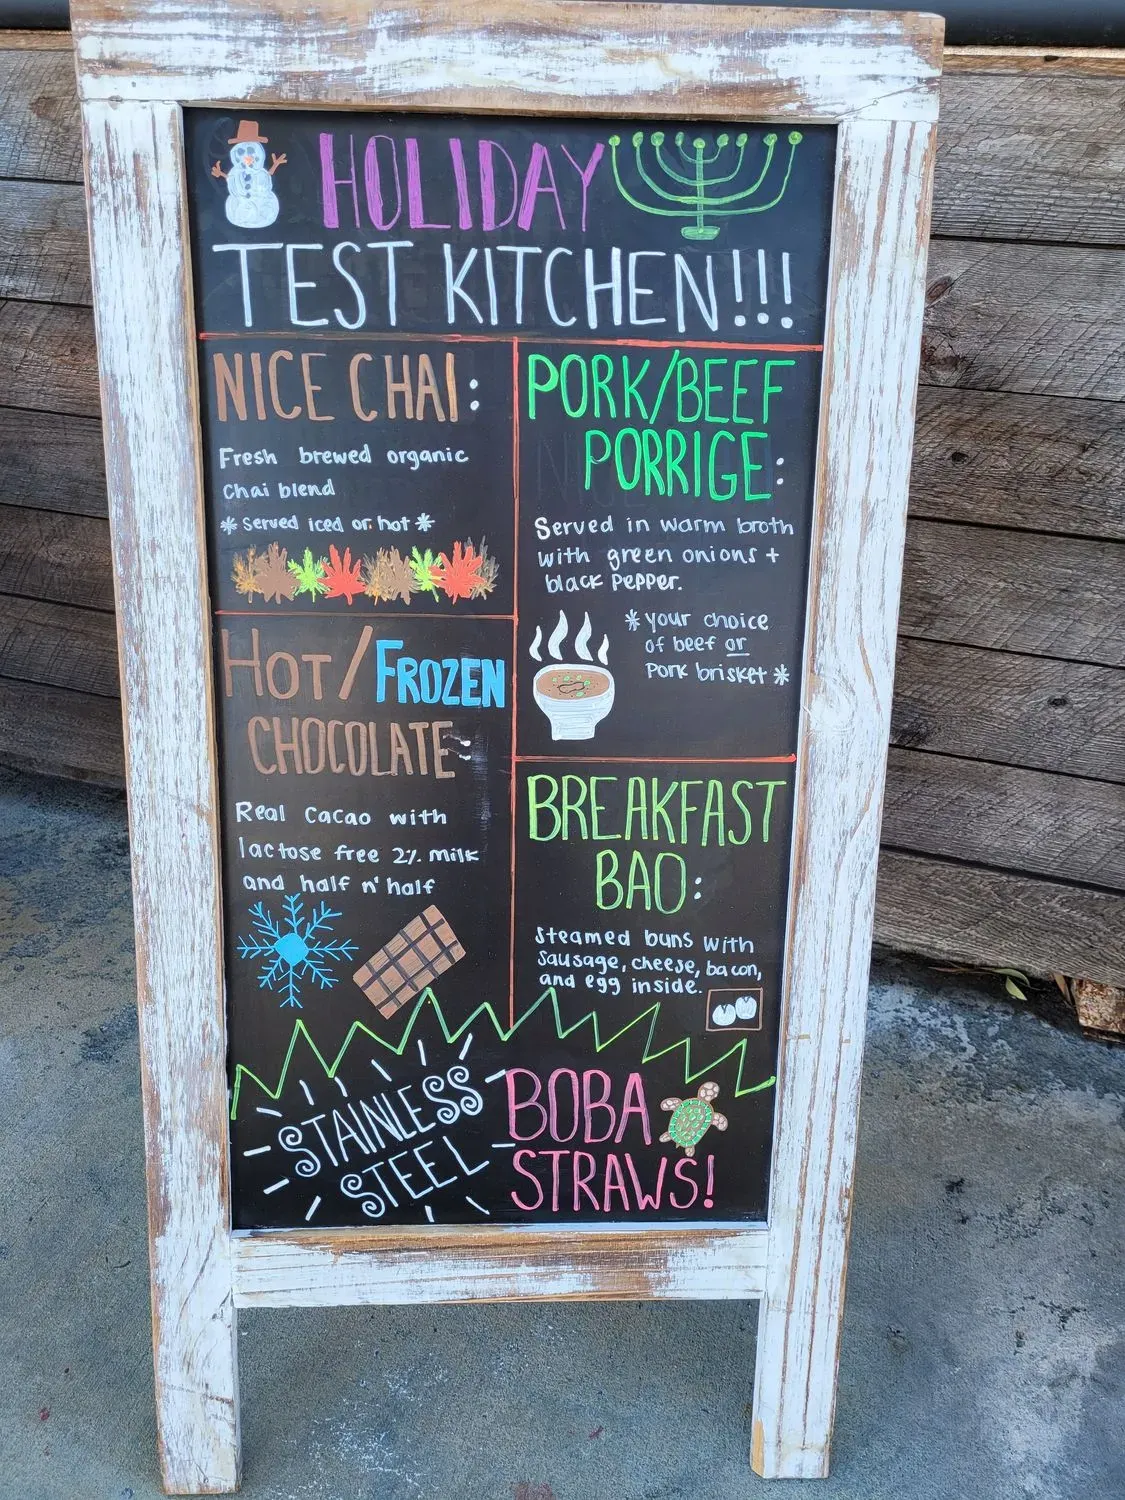 HOLIDAY
TEST KITCHEN!!!
NICE CHAI:
Fresh brewed organic
Chai blend
* served iced or hot *
HOT/FROZEN
CHOCOLATE:
Real Cacao with
lactose free 2% milk
and half n' half
PORK/BEEF
PORRIGE:
Served in warm broth
with green onions +
black pepper.
* your choice
of beef or
pork brisket *
BREAKFAST
BAO:
steamed buns with
sausage, cheese, bacon,
and egg inside.
STAINLESS
STEEL
BOBA
STRAWS!